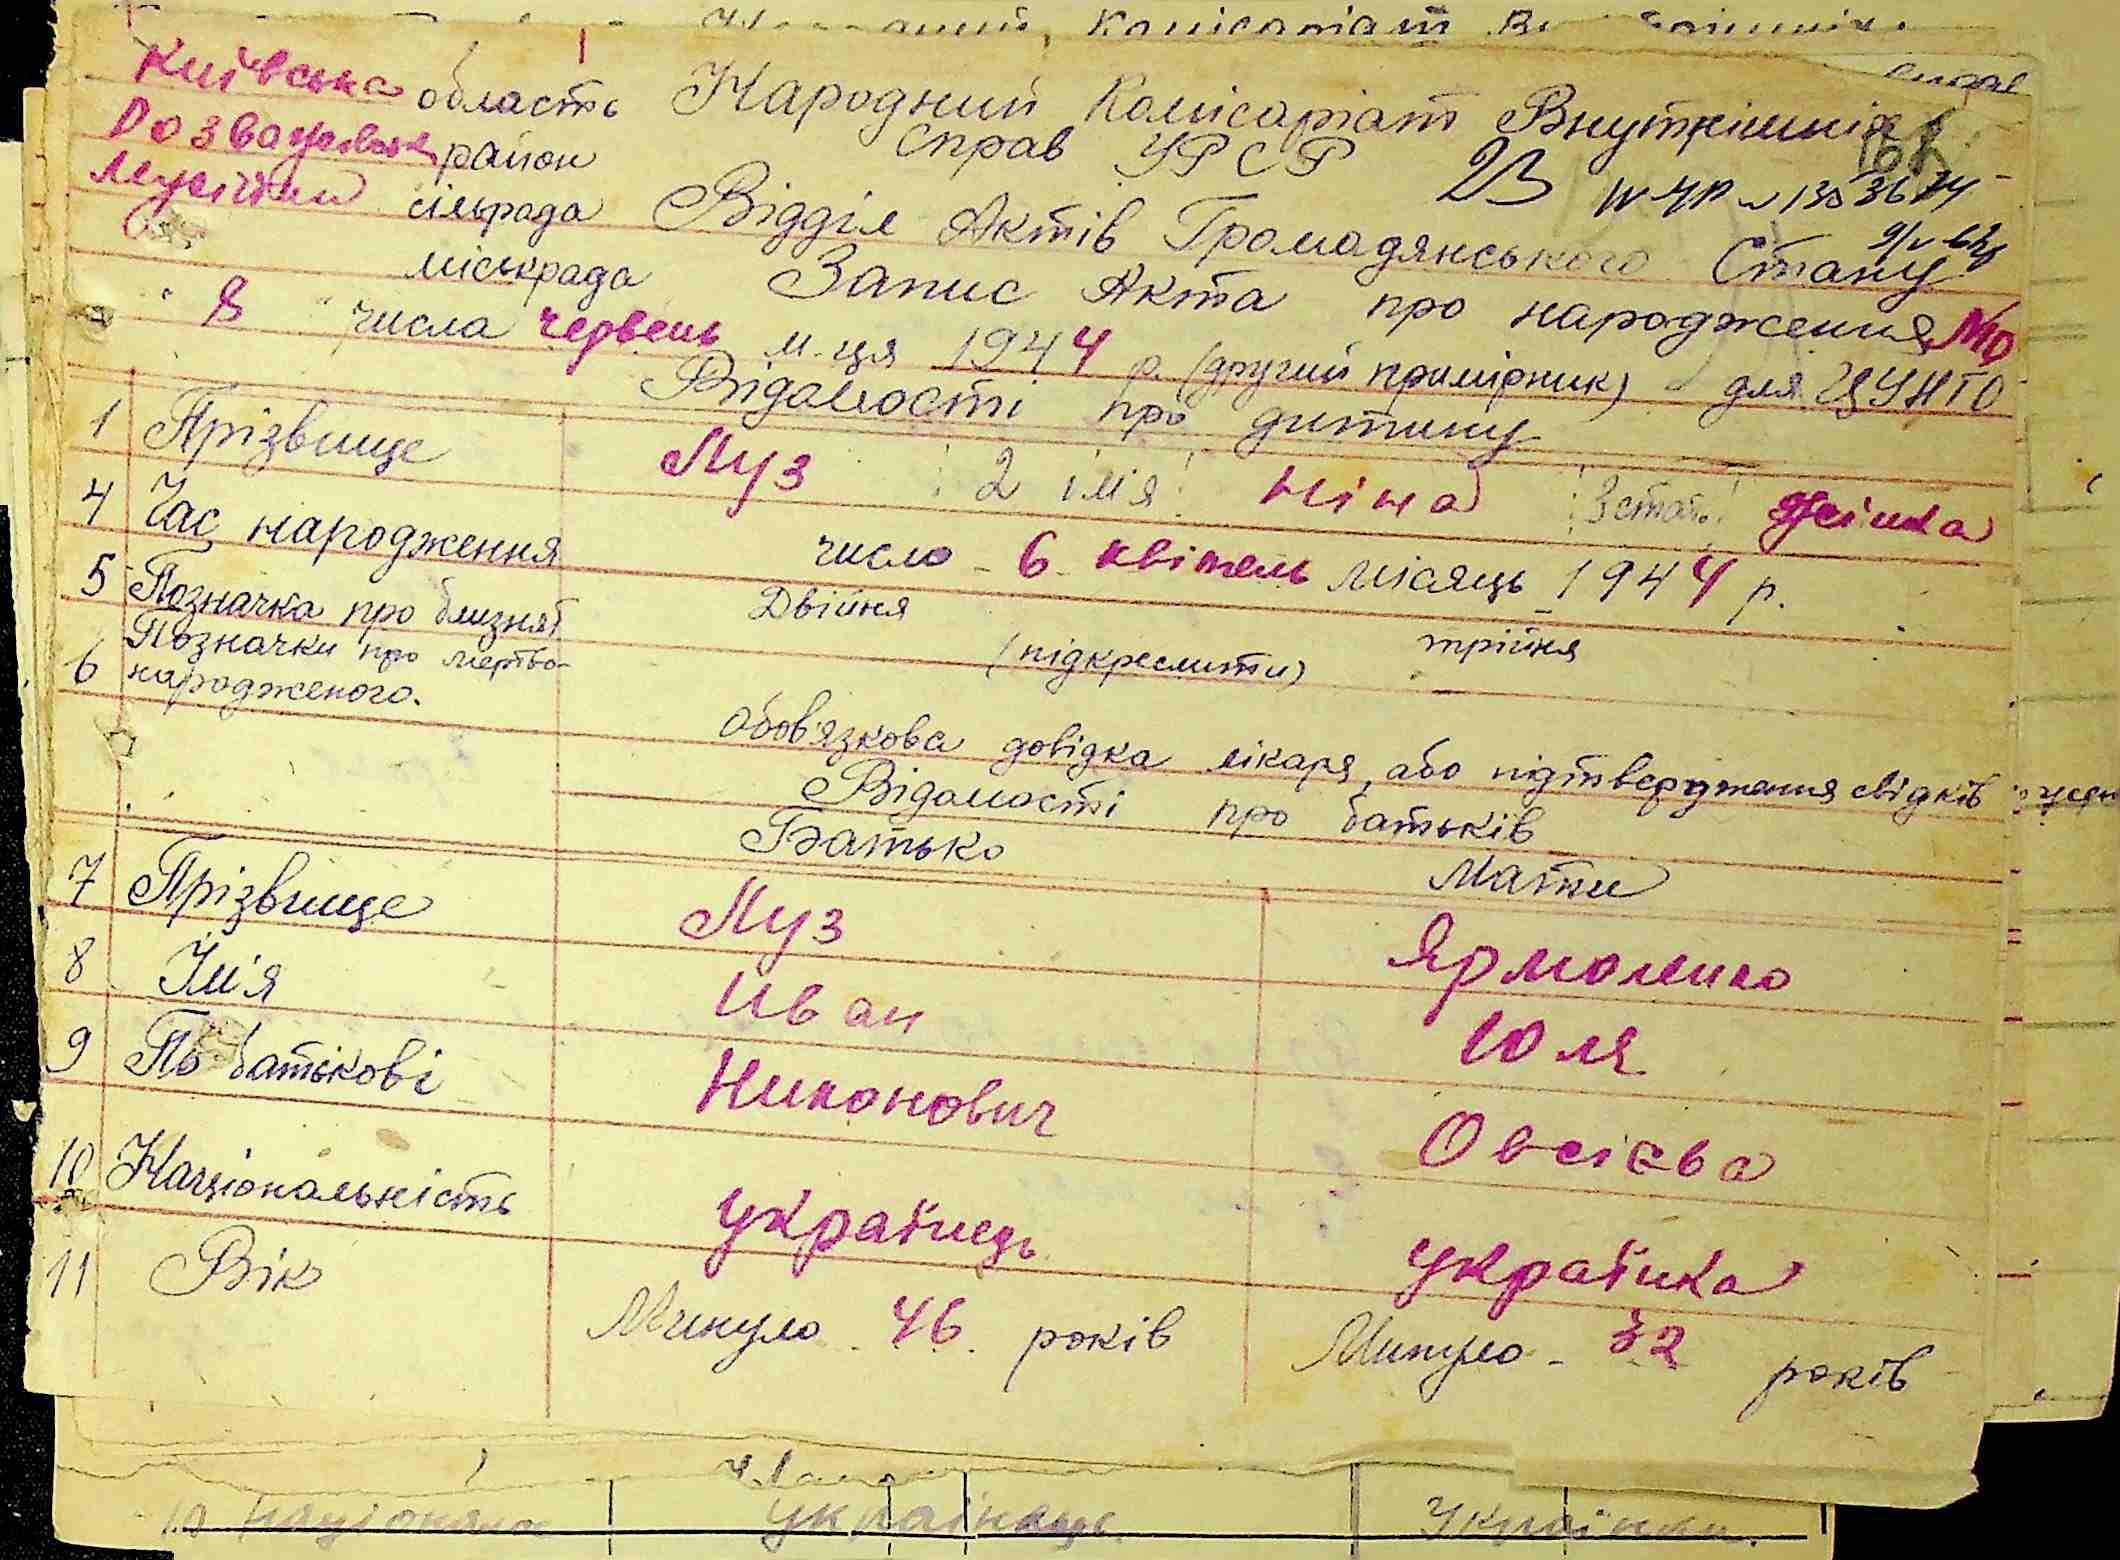 Київська область Народний Комісаріат Внутрішніх
район справ УРСР
сільрада Відділ Актів Громадянського Стану
міськрада Запис Акта про народження №10
"8" числа червень м-ця 1944 р. (другий примірник) для ЦУНГО
Відомості про дитину
1 Прізвище Муз 2 імія Ніна 3 стать жінка
4 Час народження число 6 квітень місяць 1944 р.
5 Позначка про близнят Двійня (підкреслити) трійня
6 Позначки про мертво-
народженого.
Обов'язкова довідка лікаря, або підтвердження свідків
Відомості про батьків
Батько Мати
7 Прізвище Муз Ярмоленко
8 Їм'я Иван Юля
9 По батькові Никонович Овсієва
10 Національність українець українка
11 Вік Минуло 46 років Минуло - 32 років
Українка